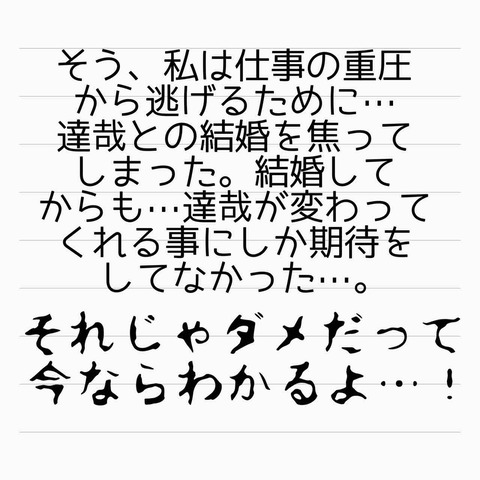 そう、私は仕事の重圧
から逃げるために…
達哉との結婚を焦って
しまった。結婚して
からも…達哉が変わって
くれる事にしか期待を
してなかった…。
それじゃダメだって
今ならわかるよ…！